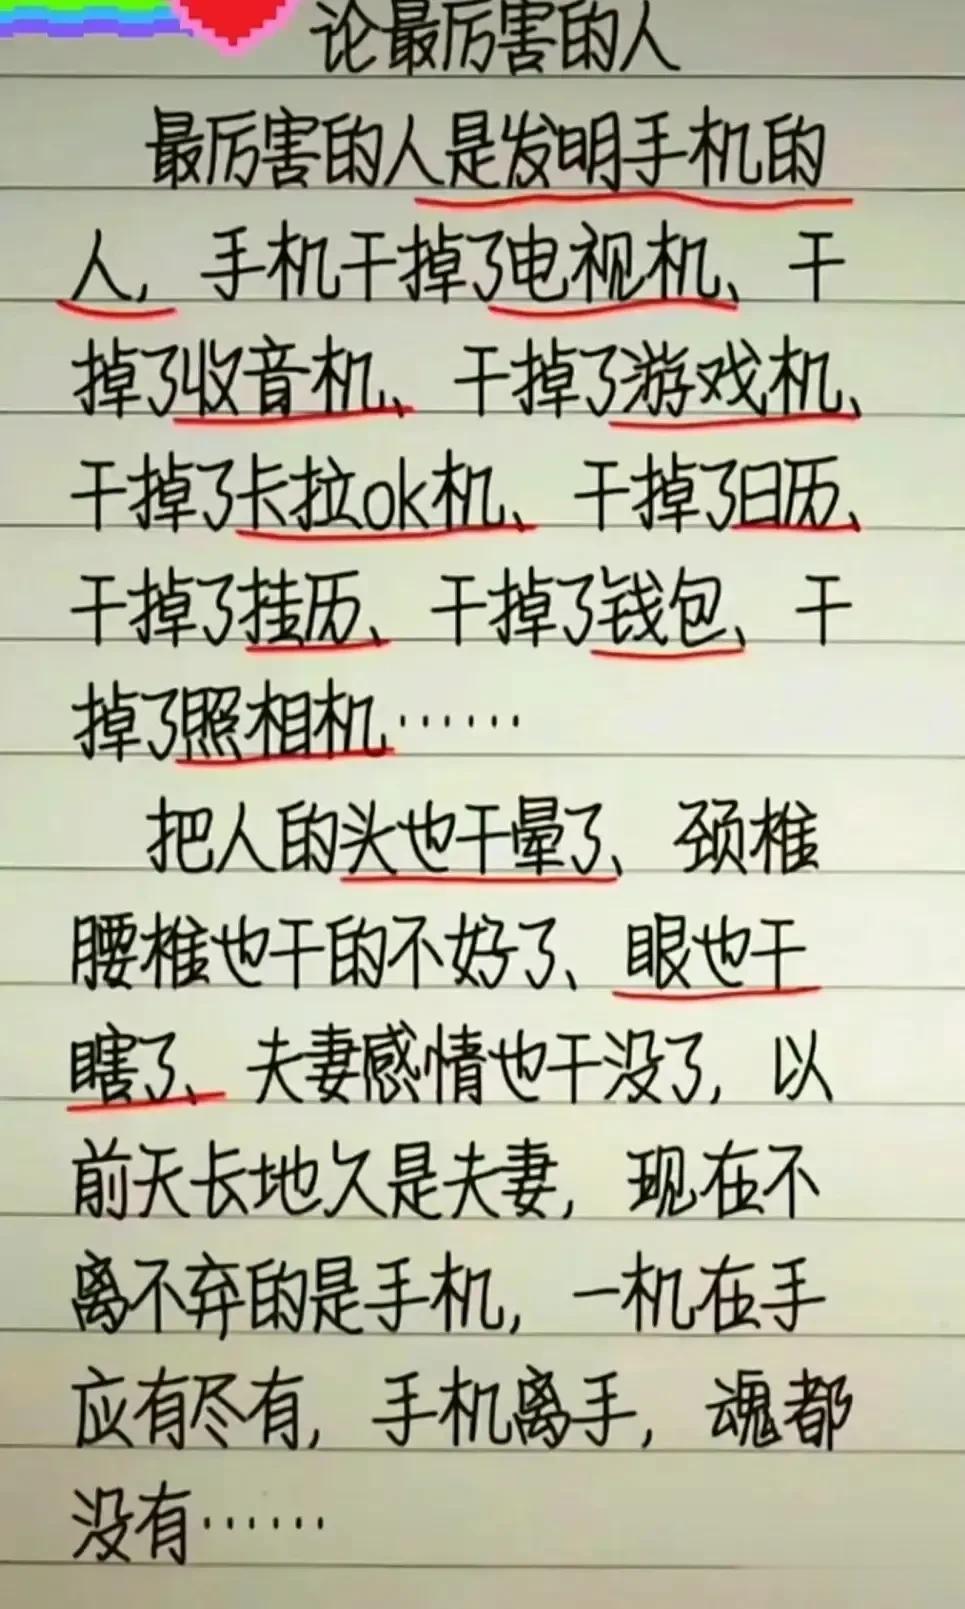 论最厉害的人
最厉害的人是发明手机的
人，手机干掉了电视机、干
掉了收音机、干掉了游戏机、
干掉了卡拉ok机、干掉了日历、
干掉了挂历、干掉了钱包、干
掉了照相机……
把人的头也干晕了、颈椎
腰椎也干的不好了、眼也干
瞎了、夫妻感情也干没了，以
前天长地久是夫妻，现在不
离不弃的是手机，一机在手
应有尽有，手机离手，魂都
没有……